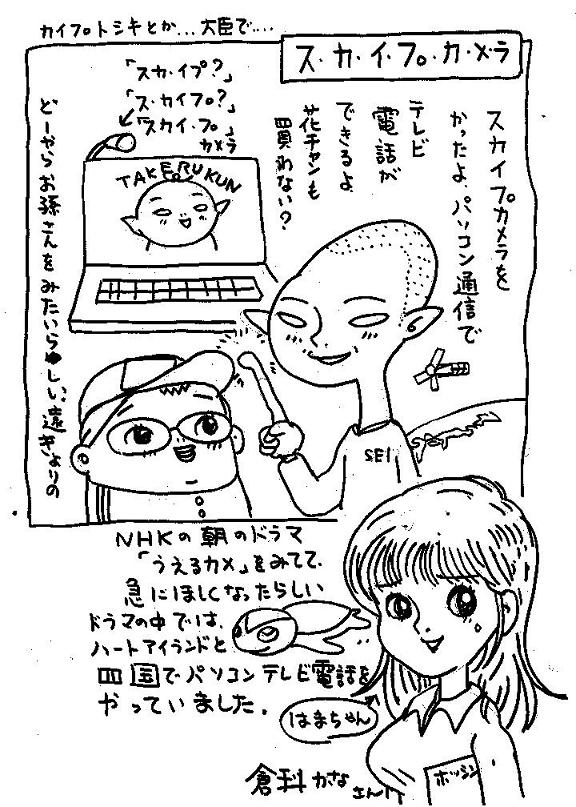 カイフ゜トシキとか...大臣で....
ス・カ・イ・プ・カ・メ・ラ
スカイプカメラを
かったよ、パソコン通信で
テレビ
電話が
できるよ
花チャンも
買わない?
「スカ・イプ?」
「ス・カイプ?」
「スカイ・プ」
カメラ
TAKERUKUN
どーからお孫さんをみたいらしい。遠きょりの
SEI
NHKの朝のドラマ
「うえるカメ」をみてて、
急にほしくなったらしい
ドラマの中では、
ハートアイランドと
四国でパソコンテレビ電話を
やっていました。
はまちゃん
倉科かな
さん
ホッシン